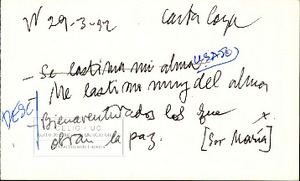 IV 29-3-92 Carta Coya
USADO
- Se lastima mi alma
Me lastima muy del alma
DESC
- Bienaventurados los que x.
obran la paz. [Sor María]